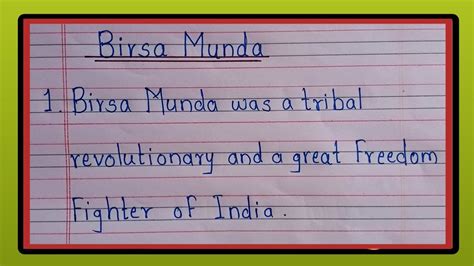 Birsa Munda
1. Birsa Munda was a tribal
revolutionary and a great Freedom
Fighter of India.